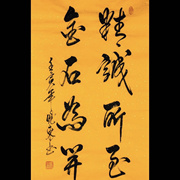 精誠所至
金石為開
壬寅年